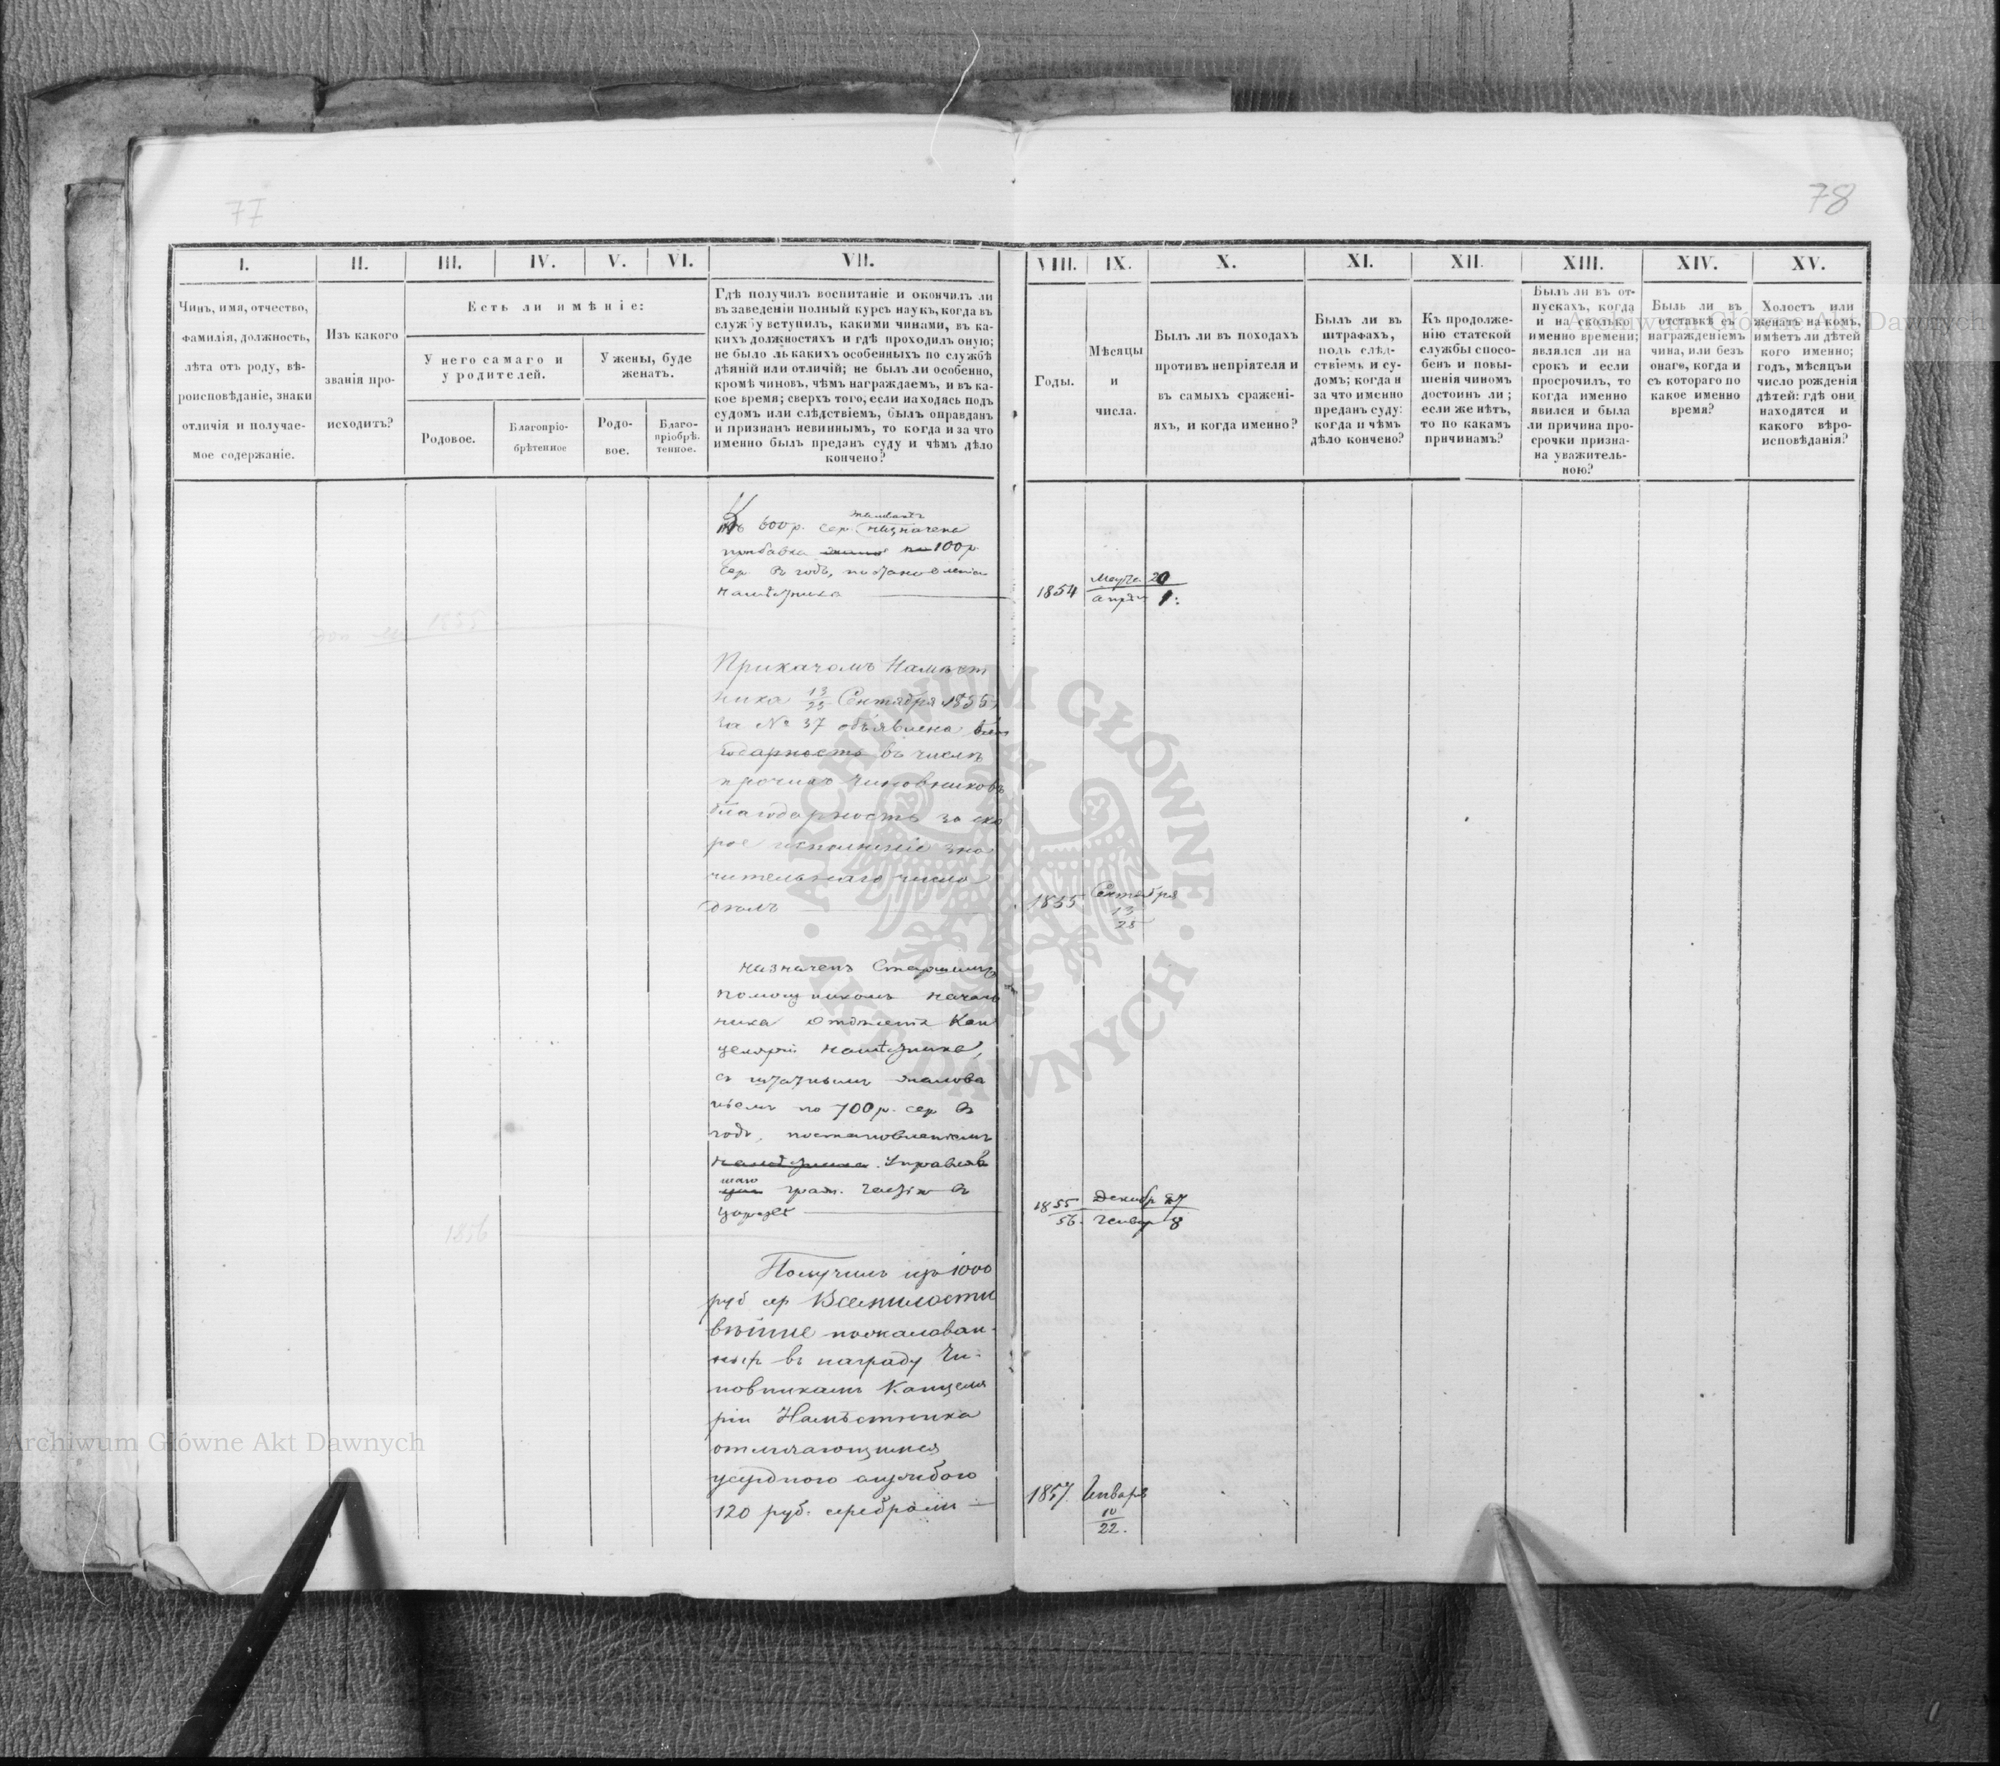 77
78
I.
II.
III.
IV.
V.
VI.
VII.
VIII.
IX.
X.
XI.
XII.
XIII.
XIV.
XV.
Чинъ, имя, отчество,
фамилія, должность,
лѣта отъ роду, вѣ-
роисповѣданіе, знаки
отличія и получае-
мое содержаніе.
Изъ какого
званія про-
исходитъ?
Есть ли имѣніе:
У него самаго и
у родителей.
У жены, буде
женатъ.
Родовое.
Благопріо-
брѣтенное
Родо-
вое.
Благо-
пріобрѣ-
тенное.
Гдѣ получилъ воспитаніе и окончилъ ли
въ заведеніи полный курсъ наукъ, когда въ
службу вступилъ, какими чинами, въ ка-
кихъ должностяхъ и гдѣ проходилъ оную;
не было ль какихъ особенныхъ по службѣ
дѣяній или отличій; не былъ ли особенно,
кромѣ чиновъ, чѣмъ награждаемъ, и въ ка-
кое время; сверхъ того, если находясь подъ
судомъ или слѣдствіемъ, былъ оправданъ
и признанъ невиннымъ, то когда и за что
именно былъ преданъ суду и чѣмъ дѣло
кончено?
Годы.
Мѣсяцы
и
числа.
Былъ ли въ походахъ
противъ непріятеля и
въ самыхъ сражені-
яхъ, и когда именно?
Былъ ли въ
штрафахъ,
подъ слѣд-
ствіемъ и су-
домъ; когда и
за что именно
преданъ суду:
когда и чѣмъ
дѣло кончено?
Къ продолже-
нію статской
службы спосо-
бенъ и повы-
шенія чиномъ
достоинъ ли;
если же нѣтъ,
то по какамъ
причинамъ?
Былъ ли въ от-
пускахъ, когда
и на сколько
именно времени;
являлся ли на
срокъ и если
просрочилъ, то
когда именно
явился и была
ли причина про-
срочки призна-
на уважитель-
ною?
Быль ли въ
отставкѣ съ
награжденіемъ
чина, или безъ
онаго, когда и
съ котораго по
какое именно
время?
Холостъ или
женатъ на комъ,
имѣетъ ли дѣтей
кого именно;
годъ, мѣсяцъ и
число рожденія
дѣтей: гдѣ они
находятся и
какого вѣро-
исповѣданія?
600 р. сер. назначена
прибавка 100 р.
сер. въ годъ, постановленіемъ
Намѣстника
1854
Апрѣл 1:
1855
Приказомъ Намѣст
ника 13/25 Сентября 1855 г.
за № 37 объявлена бла
годарность въ числѣ
прочихъ чиновниковъ
благодарность за ско
рое исполненіе зна
чительнаго числа
дѣлъ
1855 Сентября
13
25
Назначенъ Старшимъ
помощникомъ Началь
ника Отдѣленія Кан
целяріи Намѣстника,
съ штатнымъ жалова
ньемъ по 700 р. сер въ
годъ, постановленіемъ
Намѣстника. Управляв
шаго граж. частію въ
Царствѣ
1855 Декабр 27
56. Генвар 8
1856
Получилъ изъ 1000
руб сер Всемилости
вѣйше пожалован-
ныхъ въ награду Чи-
новникамъ Канцеля
ріи Намѣстника
отличающимся
усердною службою
120 руб. серебромъ
1857 Январь
10
22.
Archiwum Główne Akt Dawnych
Archiwum Główne Akt Dawnych
ARCHIWUM GŁÓWNE
AKT DAWNYCH